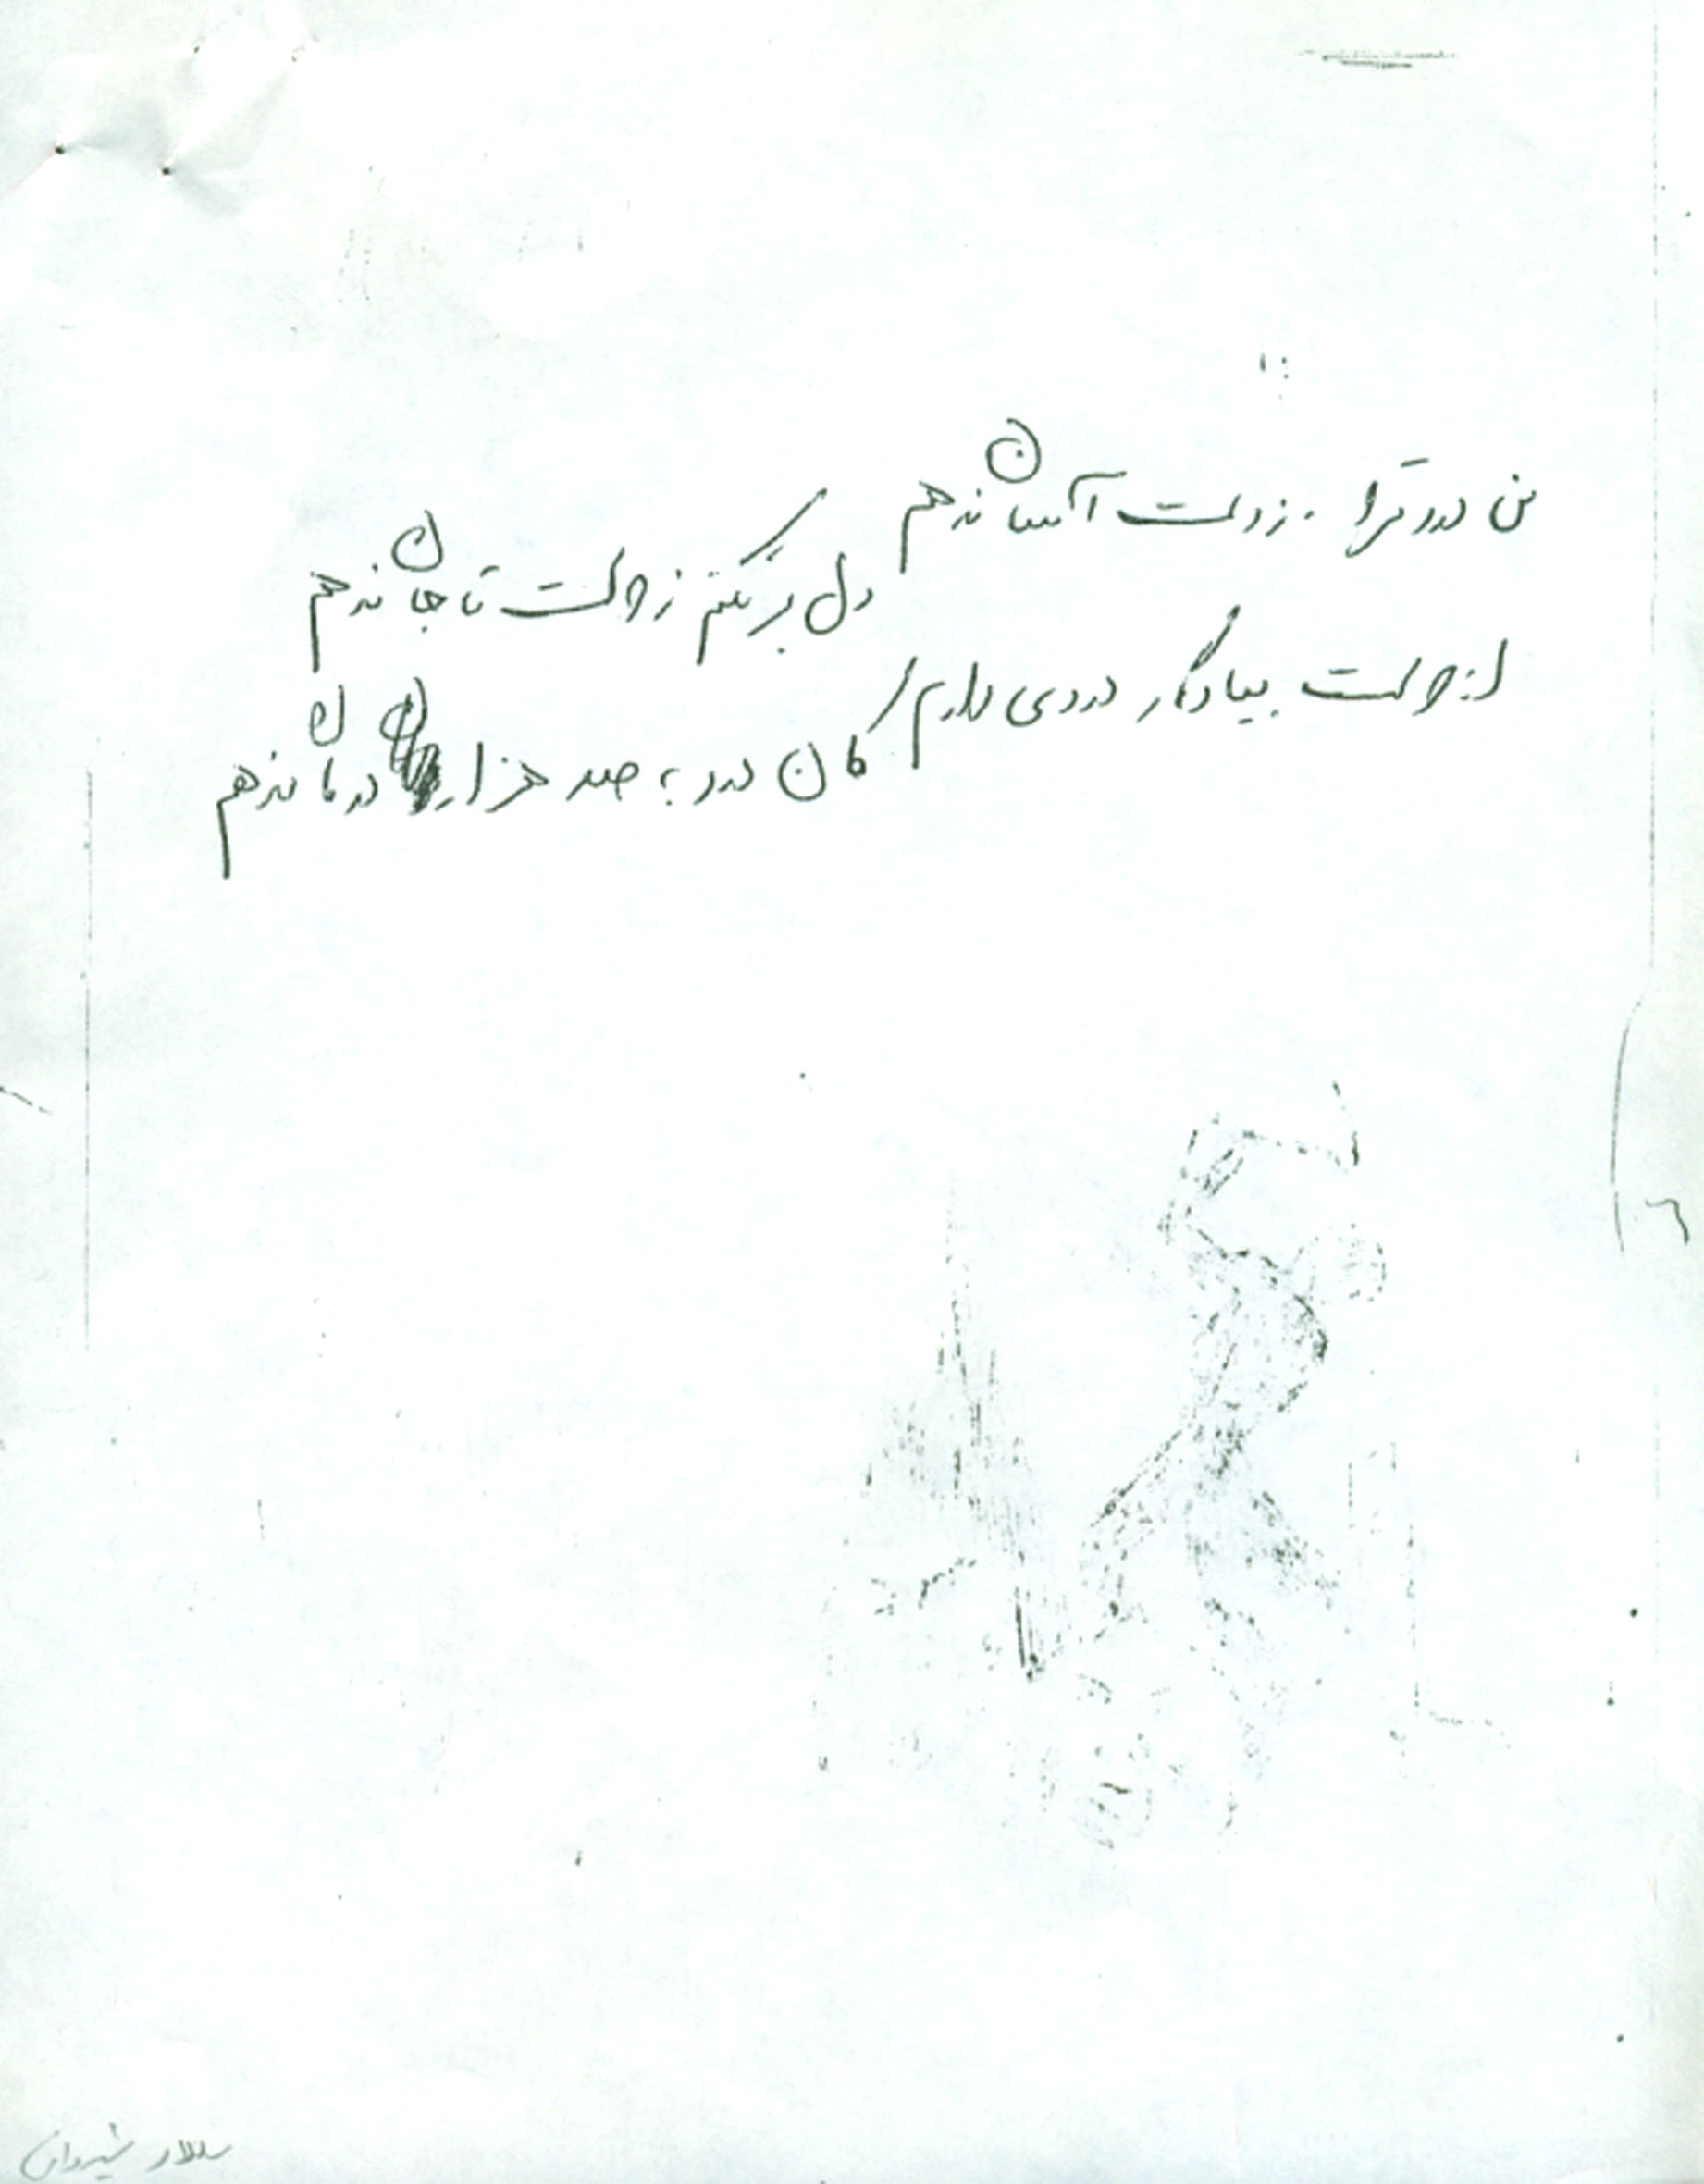 من درد ترا ز دست آسان ندهم
دل بر نکنم ز دوست تا جان ندهم
از دوست بیادگار دردی دارم
کان درد به صد هزار درمان ندهم
سالار شیروان